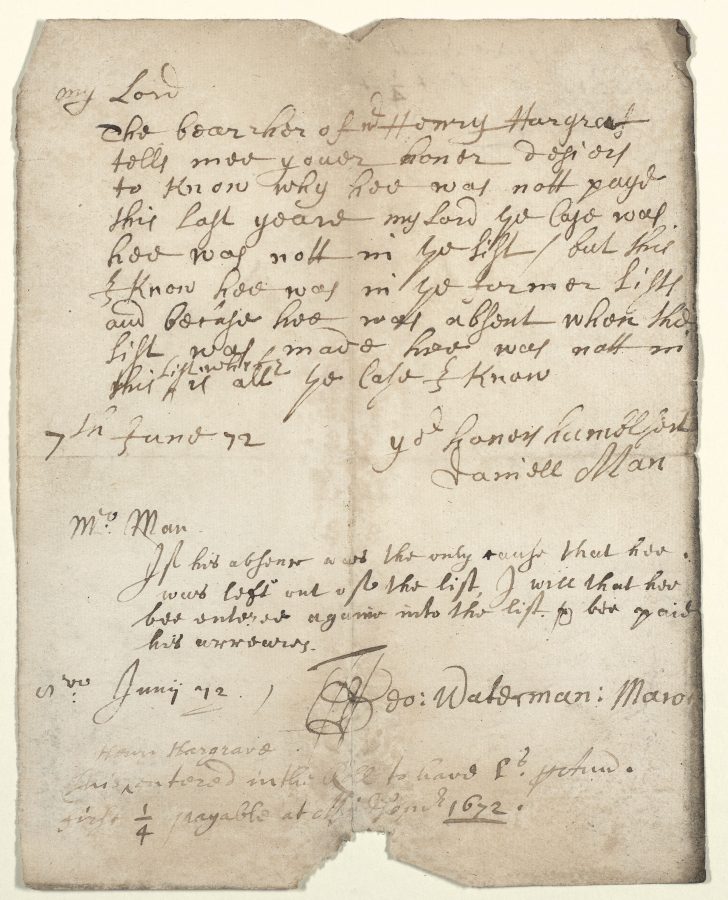 my Lord
The bearrher of Henry Hargrat
tells mee youer honer desiers
to know why hee was nott payd
this last yeare my Lord ye Case was
hee was nott in ye list / but this
I know hee was in ye former lists
and becase hee was absent when the
list was made hee was nott in
this list which is all ye Case I know
7th June 72
yor honers humblest
Daniell Man
Mr. Man
If his absence was the only cause that hee
was left out of the list, I will that hee
bee entered againe into the list & bee paid
his arreares.
Junij 72
Geo: Waterman: Maror
Henri Hargrave
entered in the to have pr Ann.
first 1/4 payable at 1672.